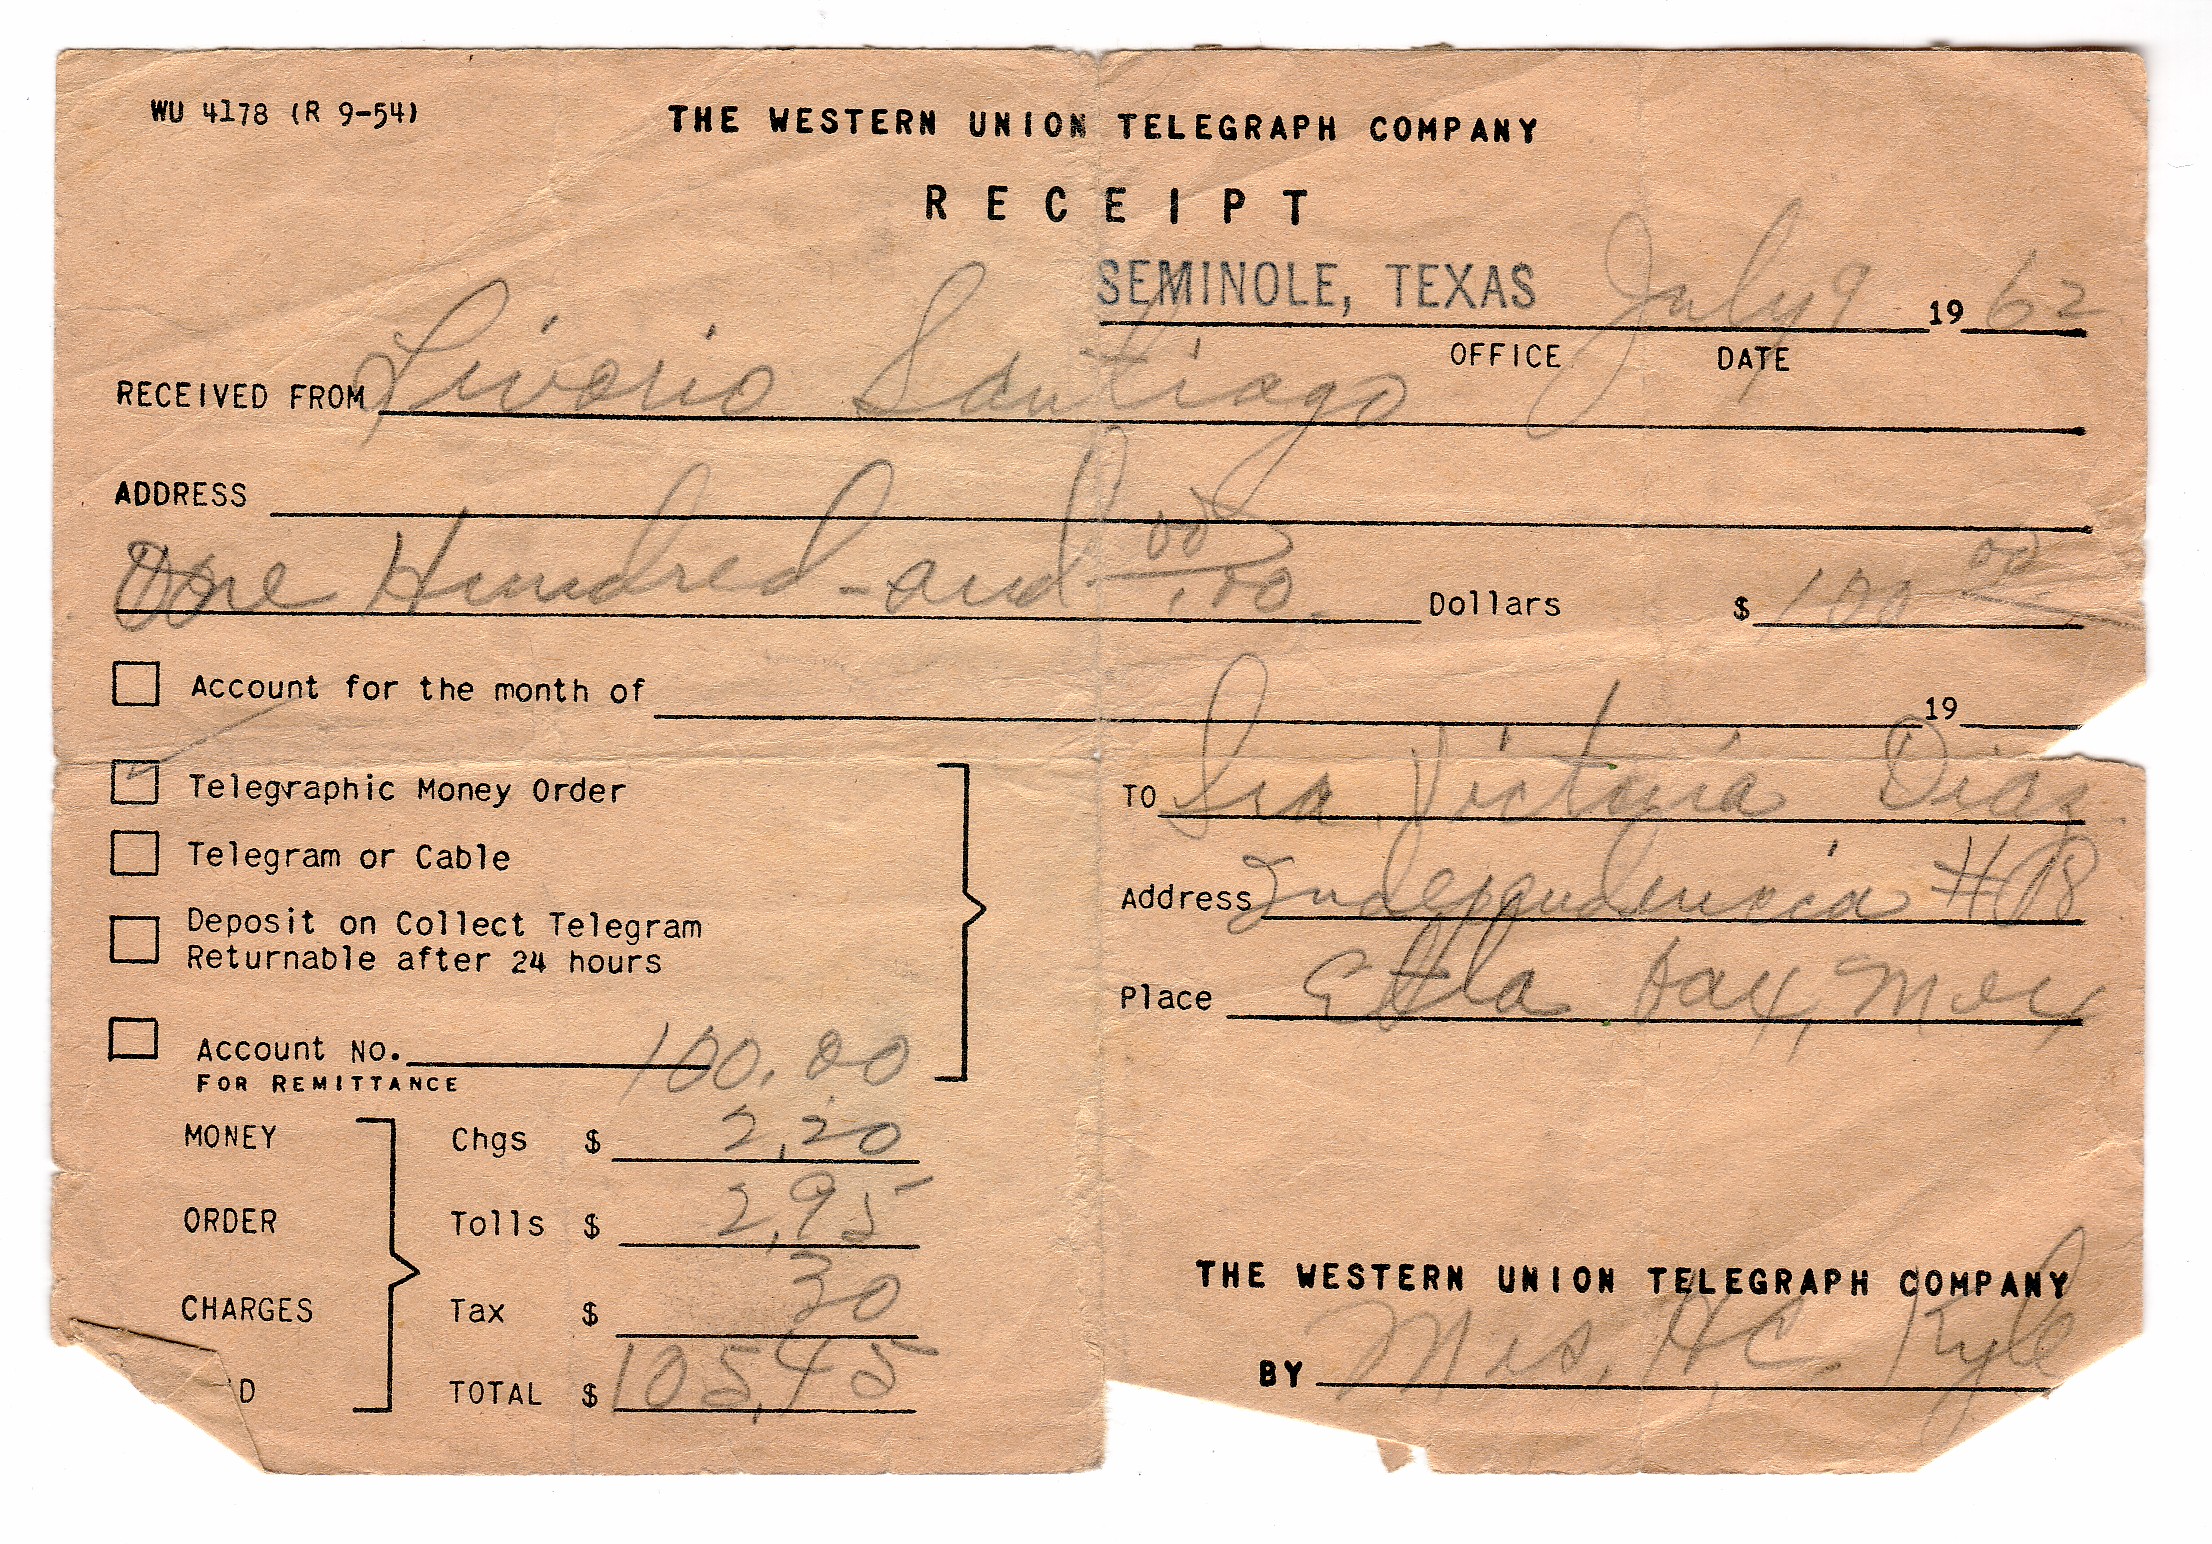 WU 4178 (R 9-54)
THE WESTERN UNION TELEGRAPH COMPANY
RECEIPT
SEMINOLE, TEXAS July 9 1962
OFFICE DATE
RECEIVED FROM Livorio Santiago
ADDRESS
One Hundred - and 00/100 Dollars $ 100 00
Account for the month of 19
Telegraphic Money Order
Telegram or Cable
Deposit on Collect Telegram
Returnable after 24 hours
Account NO. 100.00
FOR REMITTANCE
TO Sra. Victoria Diaz
Address Independencia #18
Place Etla Oax, Mex
MONEY Chgs $ 2.20
ORDER Tolls $ 2.95
CHARGES Tax $ 30
D TOTAL $ 105.45
THE WESTERN UNION TELEGRAPH COMPANY
BY Mrs. H.C. Kyle